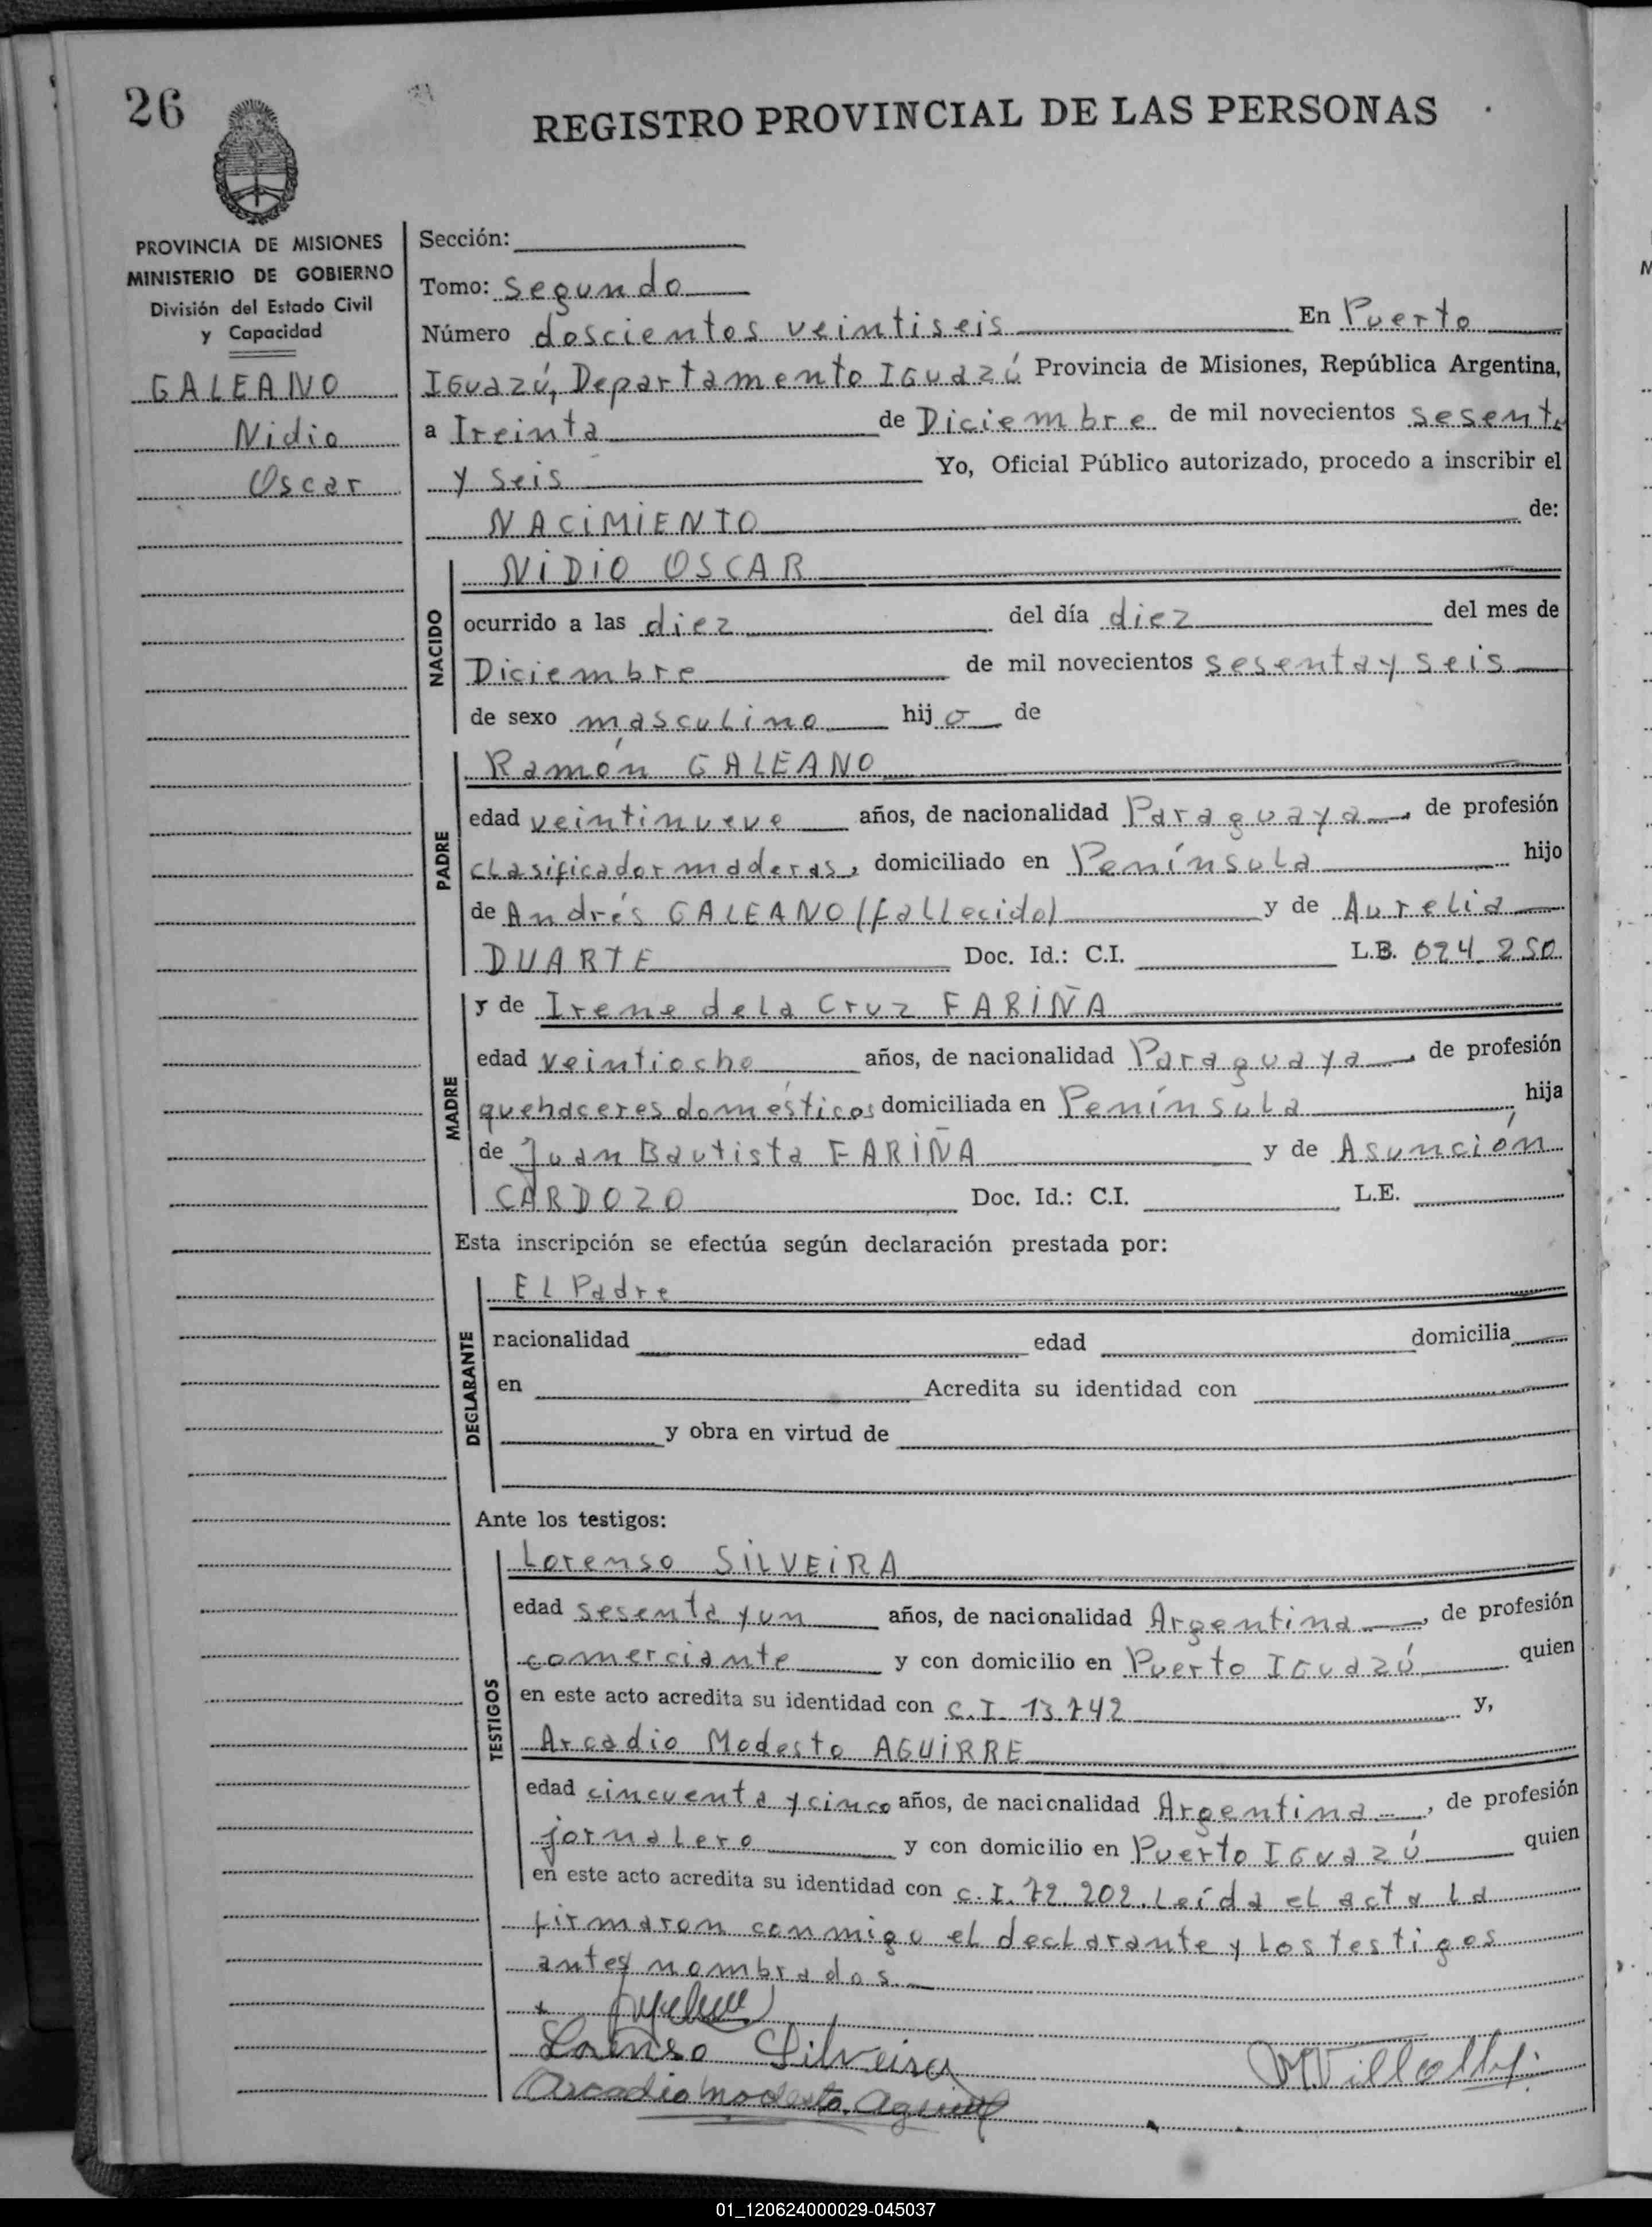 26
REGISTRO PROVINCIAL DE LAS PERSONAS
PROVINCIA DE MISIONES
MINISTERIO DE GOBIERNO
División del Estado Civil
y Capacidad
GALEANO
Nidio
Oscar
Sección:
Tomo: segundo
Número doscientos veintiseis En Puerto
IGuazú, Departamento IGuazú Provincia de Misiones, República Argentina,
a Treinta de Diciembre de mil novecientos sesenta
y seis Yo, Oficial Público autorizado, procedo a inscribir el
NACIMIENTO de:
NIDIO OSCAR
NACIDO
ocurrido a las diez del día diez del mes de
Diciembre de mil novecientos sesenta y seis
de sexo masculino hijo de
PADRE
Ramón GALEANO
edad veintinueve años, de nacionalidad Paraguaya, de profesión
clasificador maderas, domiciliado en Península hijo
de Andrés GALEANO (fallecido) y de Aurelia
DUARTE Doc. Id.: C.I. L.B. 024.250
MADRE
y de Irene de la Cruz FARIÑA
edad veintiocho años, de nacionalidad Paraguaya, de profesión
quehaceres domésticos domiciliada en Península hija
de Juan Bautista FARIÑA y de Asunción
CARDOZO Doc. Id.: C.I. L.E.
Esta inscripción se efectúa según declaración prestada por:
DECLARANTE
El Padre
nacionalidad edad domicilia
en Acredita su identidad con
y obra en virtud de
Ante los testigos:
TESTIGOS
Lorenso SILVEIRA
edad sesenta y un años, de nacionalidad Argentina, de profesión
comerciante y con domicilio en Puerto IGuazú quien
en este acto acredita su identidad con C.I. 13.742 y,
Arcadio Modesto AGUIRRE
edad cincuenta y cinco años, de nacionalidad Argentina, de profesión
jornalero y con domicilio en Puerto IGuazú quien
en este acto acredita su identidad con C.I. 72.202. Leída el acta la
firmaron conmigo el declarante y los testigos
antes nombrados.
Lorenso Silveira
Arcadio Modesto Aguirre
01_120624000029-045037